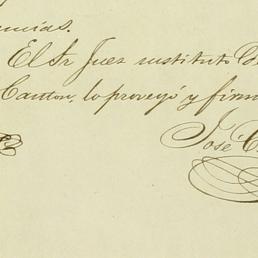 El Sr Juez sustituto
Canton, lo proveyó y firm
José C